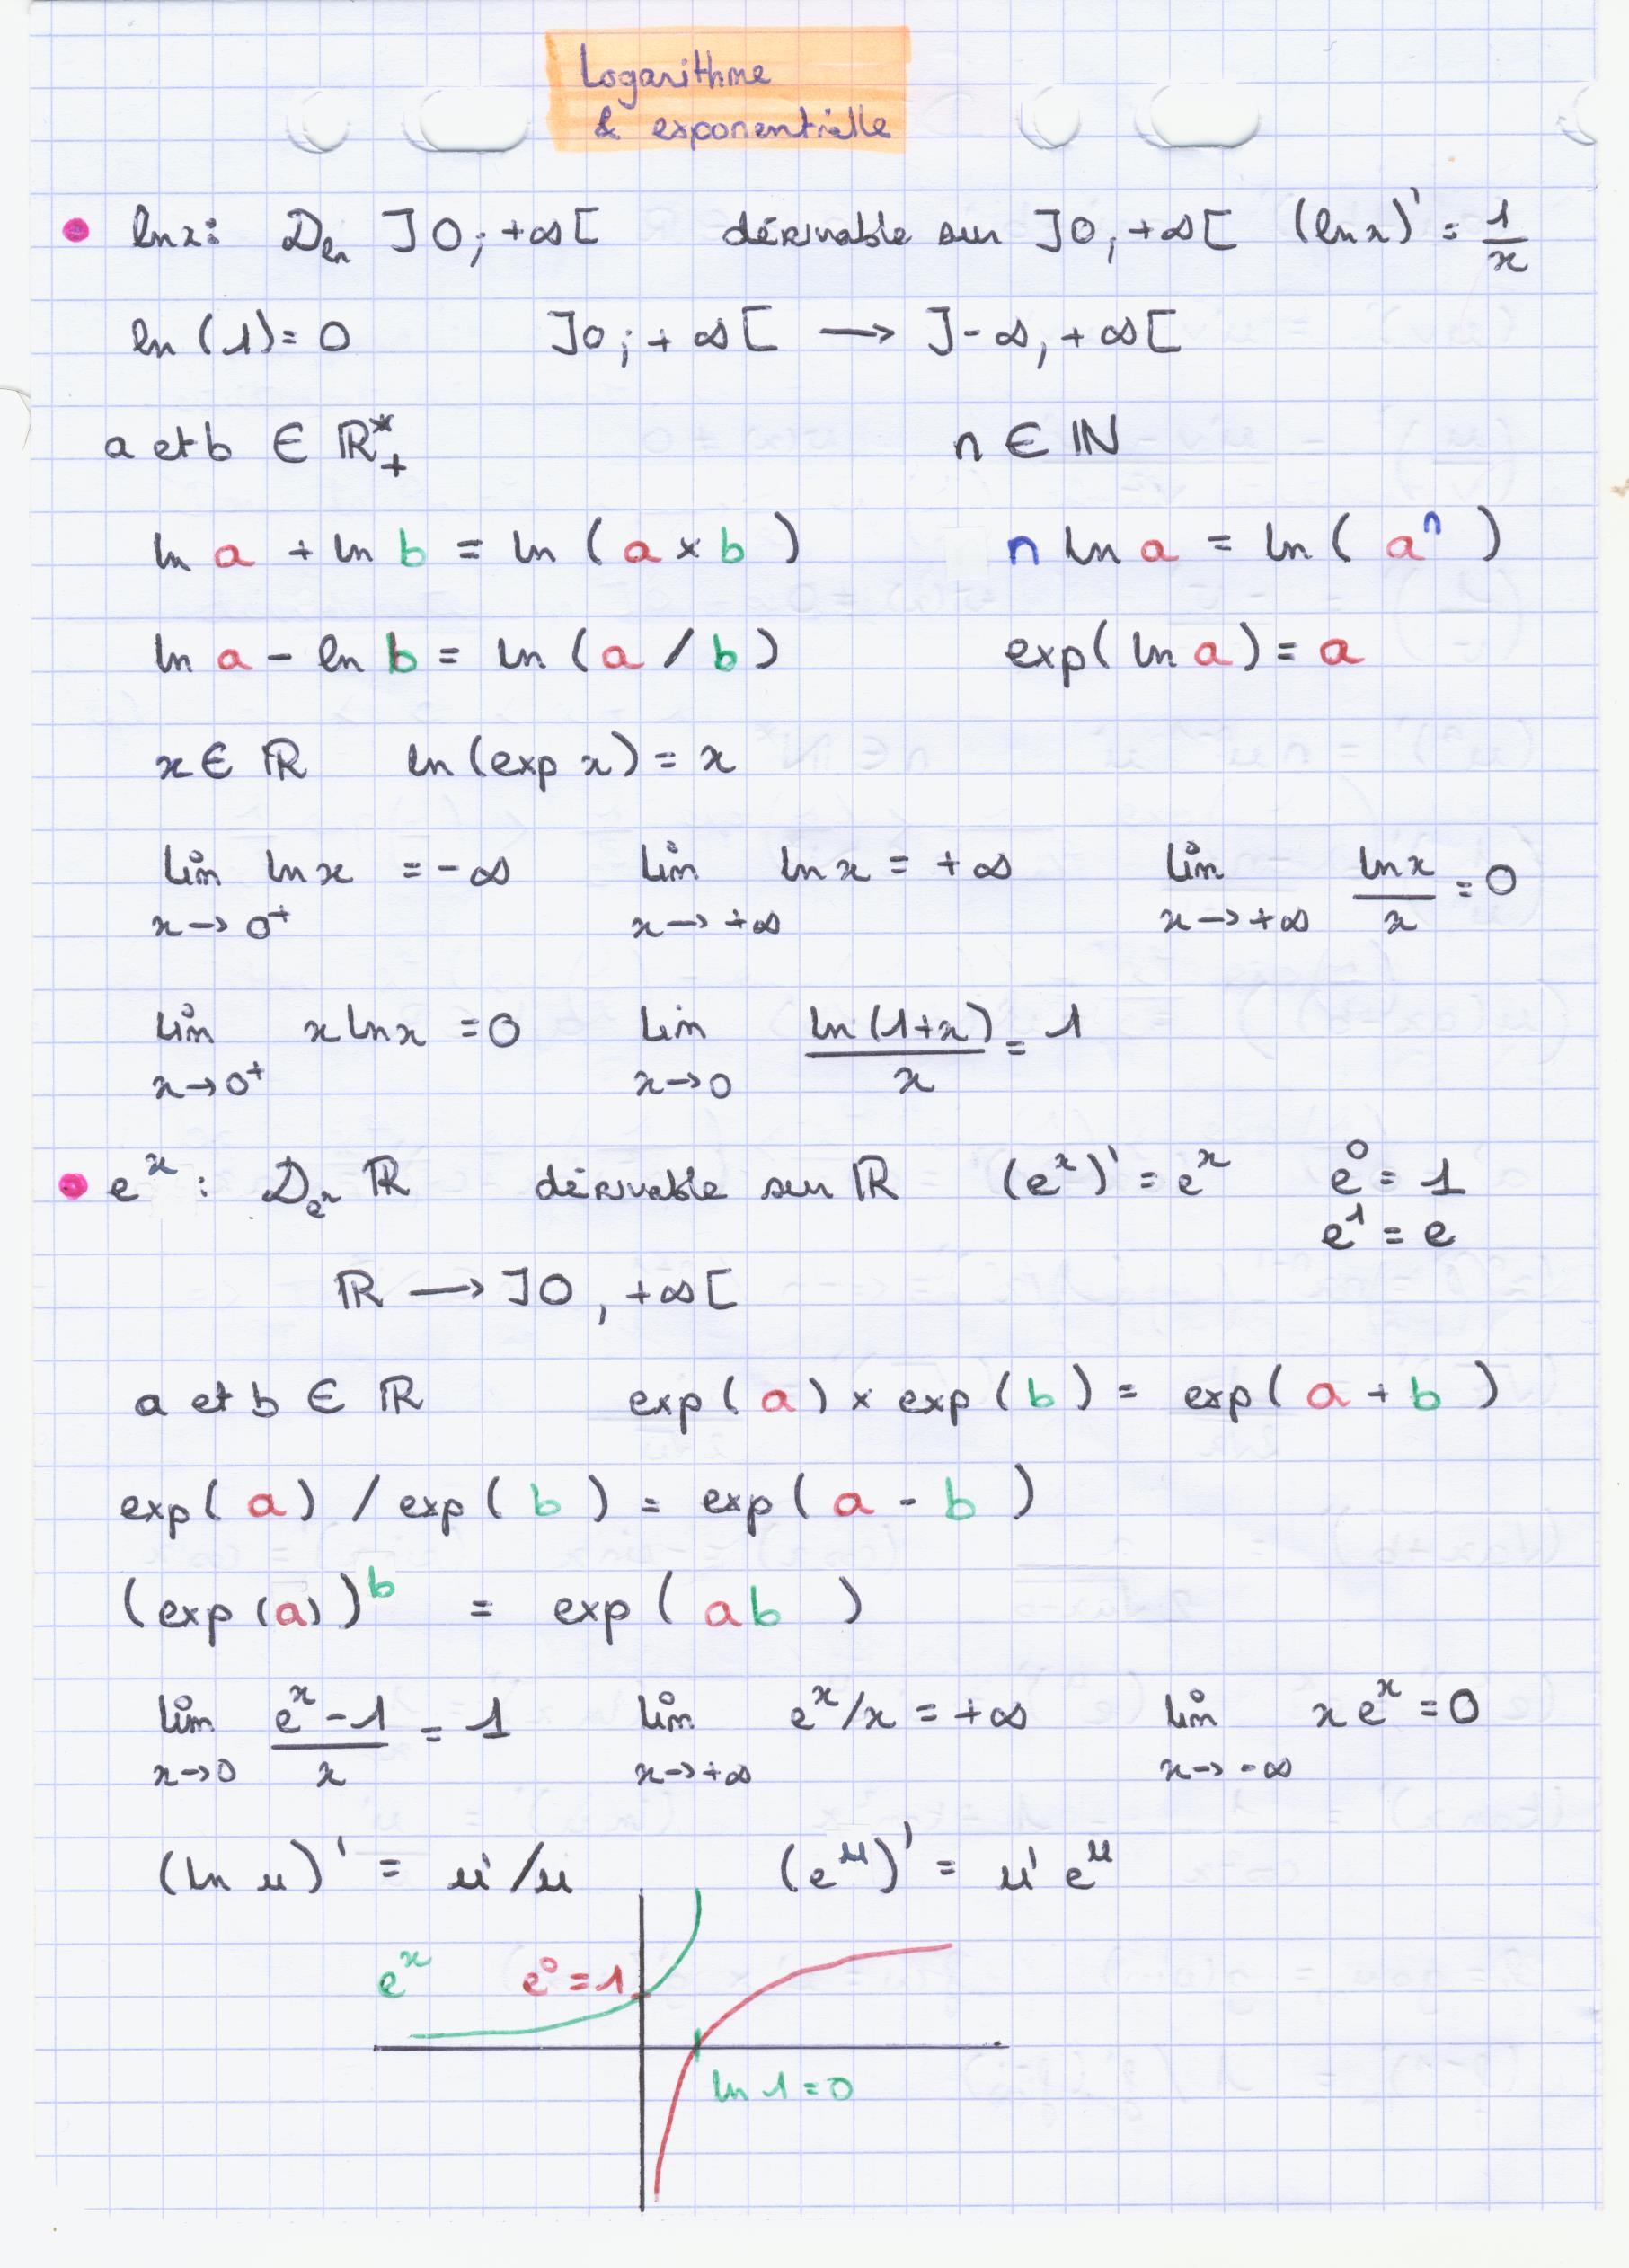 Logarithme
& exponentielle
ln x : D_ln ]0 ; +∞[ dérivable sur ]0 ; +∞[ (ln x)' = 1/x
ln (1) = 0 ]0 ; +∞[ → ]-∞, +∞[
a et b ∈ ℝ*₊ n ∈ ℕ
ln a + ln b = ln (a × b) n ln a = ln (aⁿ)
ln a - ln b = ln (a / b) exp(ln a) = a
x ∈ ℝ ln (exp x) = x
lim x→0⁺ ln x = -∞ lim x→+∞ ln x = +∞ lim x→+∞ ln x / x = 0
lim x→0⁺ x ln x = 0 lim x→0 ln (1+x) / x = 1
eˣ : D_eˣ ℝ dérivable sur ℝ (eˣ)' = eˣ e⁰ = 1
e¹ = e
ℝ → ]0, +∞[
a et b ∈ ℝ exp(a) × exp(b) = exp(a + b)
exp(a) / exp(b) = exp(a - b)
(exp(a))ᵇ = exp(ab)
lim x→0 (eˣ - 1) / x = 1 lim x→+∞ eˣ/x = +∞ lim x→-∞ x eˣ = 0
(ln u)' = u'/u (eᵘ)' = u' eᵘ
eˣ e⁰ = 1
ln 1 = 0